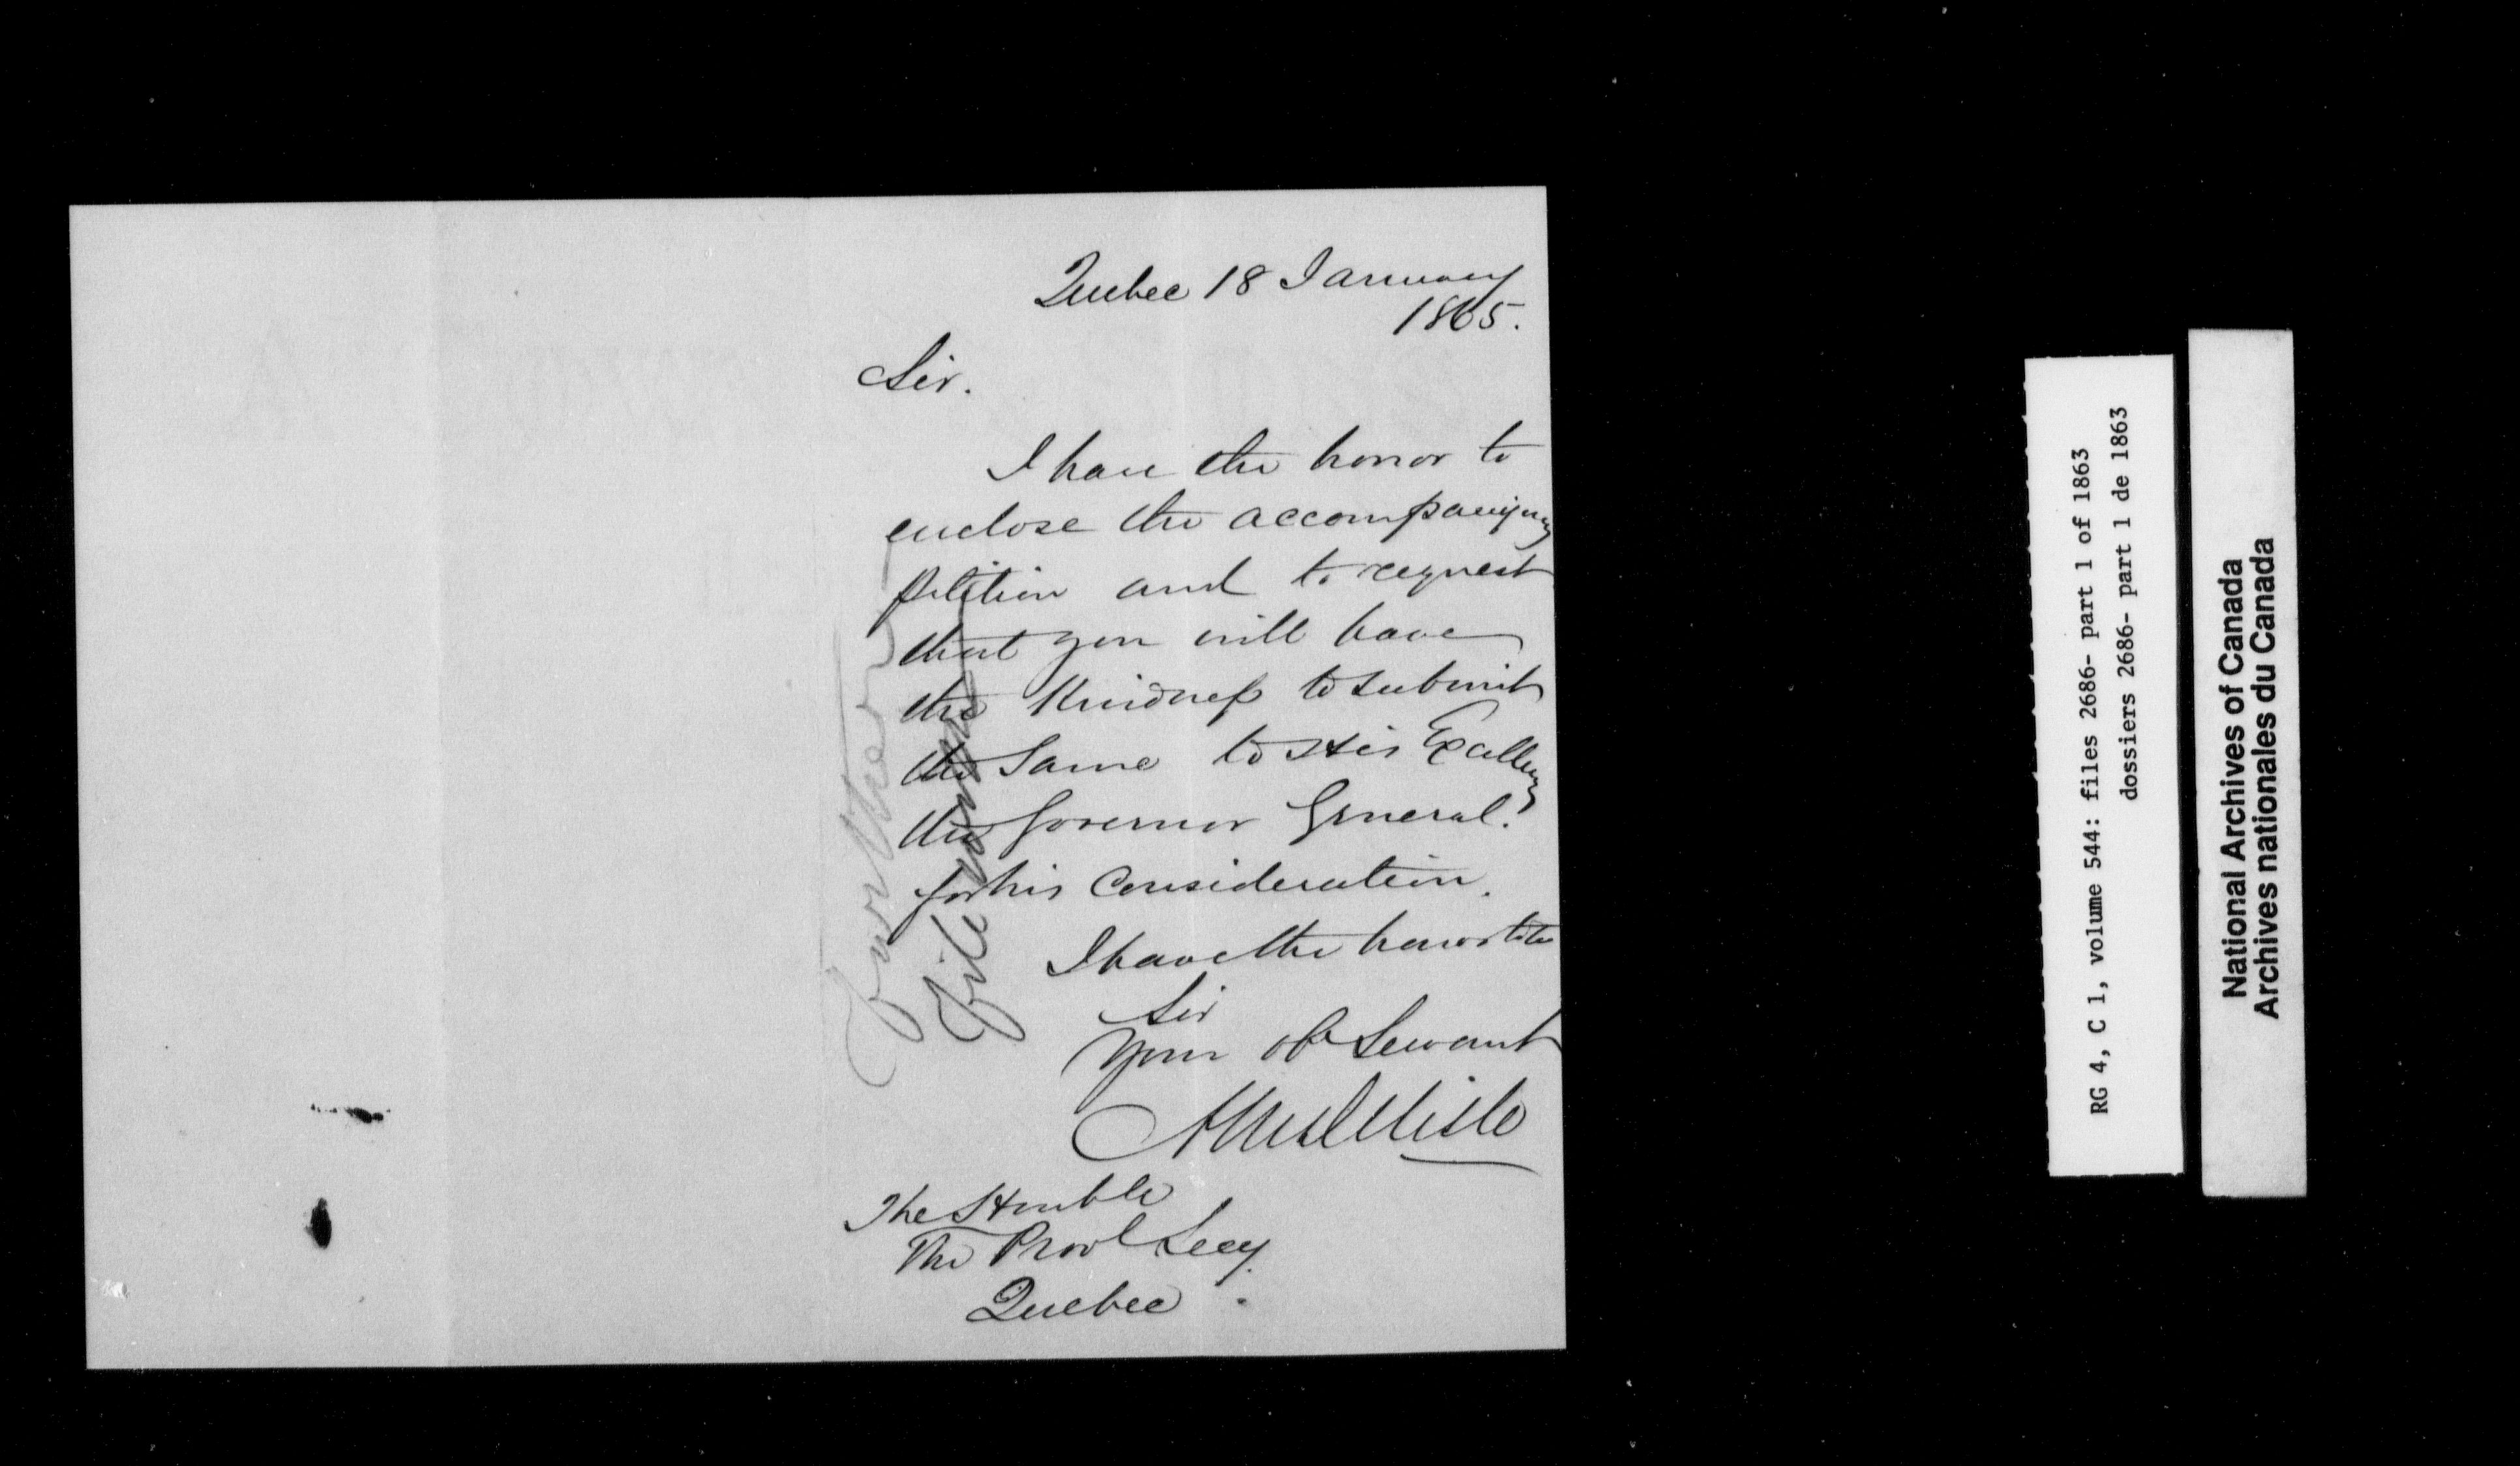 Quebec 18 January
1865.
Sir.
I have the honor to
enclose the accompanying
petition and to request
that you will have
the kindness to submit
the same to His Excellency
the Governor General.
for his consideration.
I have the honor to be
Sir
Your ob Servant
The Honble
The Provl Secy.
Quebec.
Further
file
RG 4, C 1, volume 544: files 2686- part 1 of 1863
dossiers 2686- part 1 de 1863
National Archives of Canada
Archives nationales du Canada